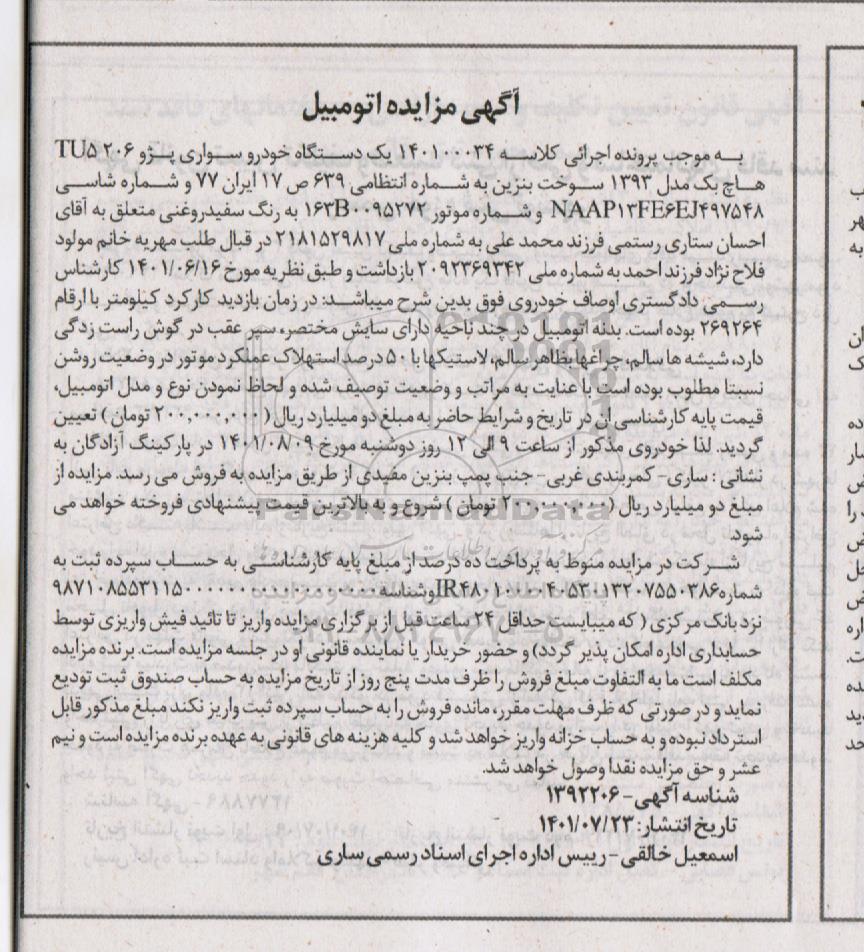 آگهی مزایده اتومبیل
به موجب پرونده اجرائی کلاسه ۱۴۰۱۰۰۰۳۴ یک دستگاه خودرو سواری پژو ۲۰۶ TU۵
هاچ بک مدل ۱۳۹۳ سوخت بنزین به شماره انتظامی ۶۳۹ ص ۱۷ ایران ۷۷ و شماره شاسی
NAAP۱۳FE۶EJ۴۹۷۵۴۸ و شماره موتور ۱۶۳B۰۰۹۵۲۷۲ به رنگ سفیدروغنی متعلق به آقای
احسان ستاری رستمی فرزند محمد علی به شماره ملی ۲۱۸۱۵۲۹۸۱۷ در قبال طلب مهریه خانم مولود
فلاح نژاد فرزند احمد به شماره ملی ۲۰۹۲۳۶۹۳۴۲ بازداشت و طبق نظریه مورخ ۱۴۰۱/۰۶/۱۶ کارشناس
رسمی دادگستری اوصاف خودروی فوق بدین شرح میباشد: در زمان بازدید کارکرد کیلومتر با ارقام
۲۶۹۲۶۴ بوده است. بدنه اتومبیل در چند ناحیه دارای سایش مختصر، سپر عقب در گوش راست زدگی
دارد، شیشه ها سالم، چراغها بظاهر سالم، لاستیکها با ۵۰ درصد استهلاک عملکرد موتور در وضعیت روشن
نسبتا مطلوب بوده است با عنایت به مراتب و وضعیت توصیف شده و لحاظ نمودن نوع و مدل اتومبیل،
قیمت پایه کارشناسی آن در تاریخ و شرایط حاضر به مبلغ دو میلیارد ریال ( ۲۰۰,۰۰۰,۰۰۰ تومان ) تعیین
گردید. لذا خودروی مذکور از ساعت ۹ الی ۱۲ روز دوشنبه مورخ ۱۴۰۱/۰۸/۰۹ در پارکینگ آزادگان به
نشانی : ساری- کمربندی غربی – جنب پمپ بنزین مفیدی از طریق مزایده به فروش می رسد. مزایده از
مبلغ دو میلیارد ریال (۲۰۰,۰۰۰,۰۰۰ تومان ) شروع و به بالاترین قیمت پیشنهادی فروخته خواهد می
شود.
شرکت در مزایده منوط به پرداخت ده درصد از مبلغ پایه کارشناسی به حساب سپرده ثبت به
نزد بانک مرکزی ( که میبایست حداقل ۲۴ ساعت قبل از برگزاری مزایده واریز تا تائید فیش واریزی توسط
حسابداری اداره امکان پذیر گردد) و حضور خریدار یا نماینده قانونی او در جلسه مزایده است. برنده مزایده
مکلف است ما به التفاوت مبلغ فروش را ظرف مدت پنج روز از تاریخ مزایده به حساب صندوق ثبت تودیع
نماید و در صورتی که ظرف مهلت مقرر، مانده فروش را به حساب سپرده ثبت واریز نکند مبلغ مذکور قابل
استرداد نبوده و به حساب خزانه واریز خواهد شد و کلیه هزینه های قانونی به عهده برنده مزایده است و نیم
عشر و حق مزایده نقدا وصول خواهد شد.
شناسه آگهی- ۱۳۹۲۲۰۶
تاریخ انتشار: ۱۴۰۱/۰۷/۲۳
اسمعیل خالقی - رییس اداره اجرای اسناد رسمی ساری
ParsNamadData